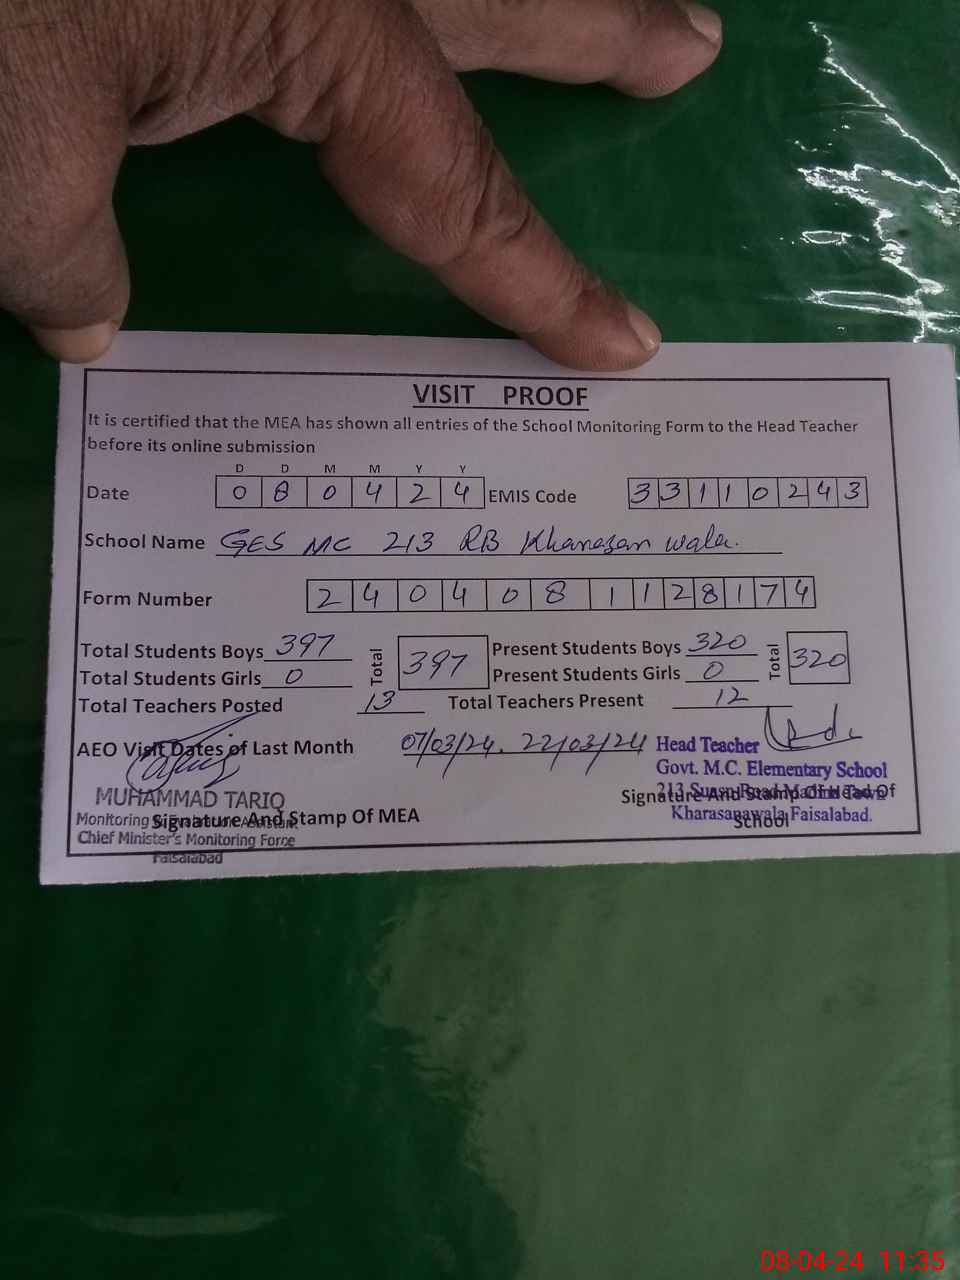 VISIT PROOF
It is certified that the MEA has shown all entries of the School Monitoring Form to the Head Teacher
before its online submission
D D M M Y Y
Date 0 8 0 4 2 4 EMIS Code 3 3 1 1 0 2 4 3
School Name GES MC 213 RB Khanasan wala.
Form Number 2 4 0 4 0 8 1 1 2 8 1 7 4
Total Students Boys 397 Total 397 Present Students Boys 320 Total 320
Total Students Girls 0 Present Students Girls 0
Total Teachers Posted 13 Total Teachers Present 12
AEO Visit Dates of Last Month 07/03/24. 22/03/24
Head Teacher
Govt. M.C. Elementary School
213 Road Madina Town
Signature And Stamp Of Head Of
School
Kharasanawala Faisalabad.
MUHAMMAD TARIQ
Monitoring
Signature And Stamp Of MEA
Chief Minister's Monitoring Force
Faisalabad
08-04-24 11:35